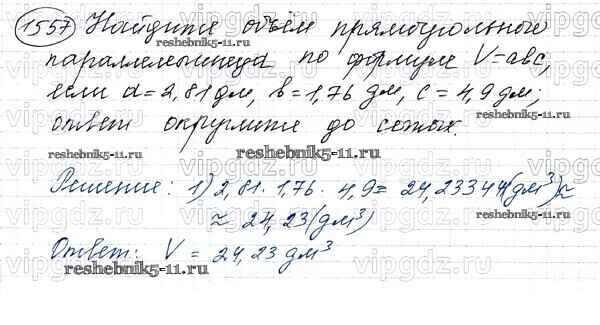 1557 Найдите объём прямоугольного
параллелепипеда по формуле V=abc,
если a=2,81 дм, b=1,76 дм, c=4,9 дм;
ответ округлите до сотых.
Решение: 1) 2,81·1,76·4,9= 24,23344(дм³)≈
≈ 24,23(дм³)
Ответ: V = 24,23 дм³
reshebnik5-11.ru
reshebnik5-11.ru
reshebnik5-11.ru
reshebnik5-11.ru
reshebnik5-11.ru
reshebnik5-11.ru
vipgdz.ru